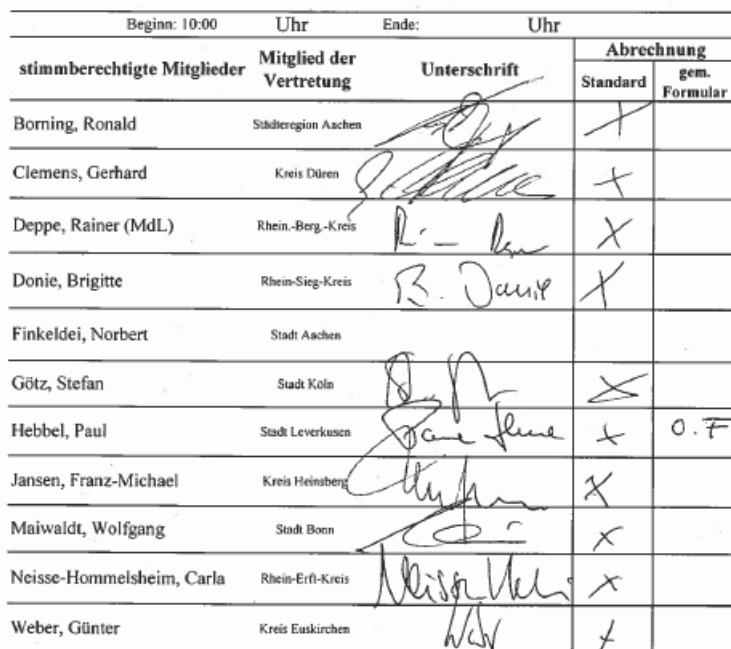 Beginn: 10:00 Uhr Ende: Uhr
stimmberechtigte Mitglieder Mitglied der Vertretung Unterschrift Abrechnung
Standard gem. Formular
Borning, Ronald Städteregion Aachen
Clemens, Gerhard Kreis Düren
Deppe, Rainer (MdL) Rhein.-Berg.-Kreis
Donie, Brigitte Rhein-Sieg-Kreis B. Donie X
Finkeldei, Norbert Stadt Aachen
Götz, Stefan Stadt Köln
Hebbel, Paul Stadt Leverkusen O.F
Jansen, Franz-Michael Kreis Heinsberg X
Maiwaldt, Wolfgang Stadt Bonn X
Neisse-Hommelsheim, Carla Rhein-Erft-Kreis X
Weber, Günter Kreis Euskirchen